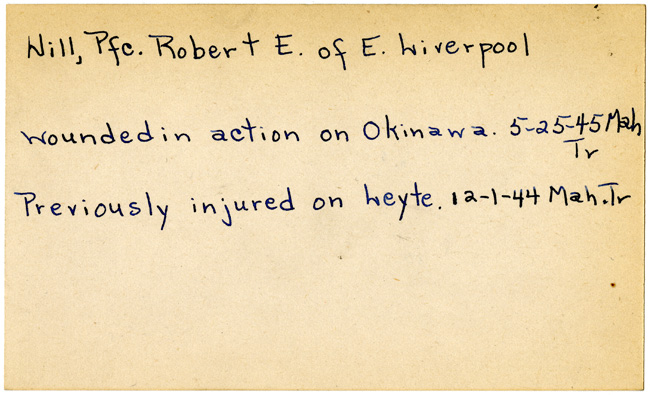 Will, Pfc. Robert E. of E. Liverpool
wounded in action on Okinawa. 5-25-45 Mah
Tr
Previously injured on Leyte. 12-1-44 Mah. Tr